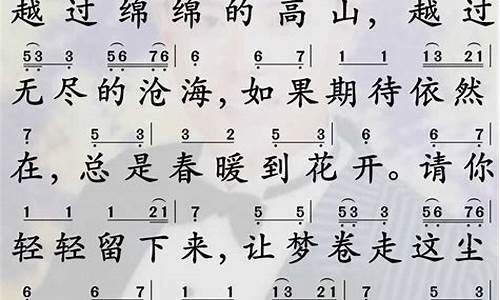 越过绵绵的高山，越过
53 3 | 56 76 | 6 6 7 | 1 1 13 21 |
无尽的沧海，如果期待依然
7 5 3 | 3 2 5 3 | 6 6 7 |
在，总是春暖到花开。请你
1 1 1 21 | 7 5 5 | 53 3 | 56 76 |
轻轻留下来，让梦卷走这尘
6 6 7 | 1 1 13 21 | 7 5 3 |